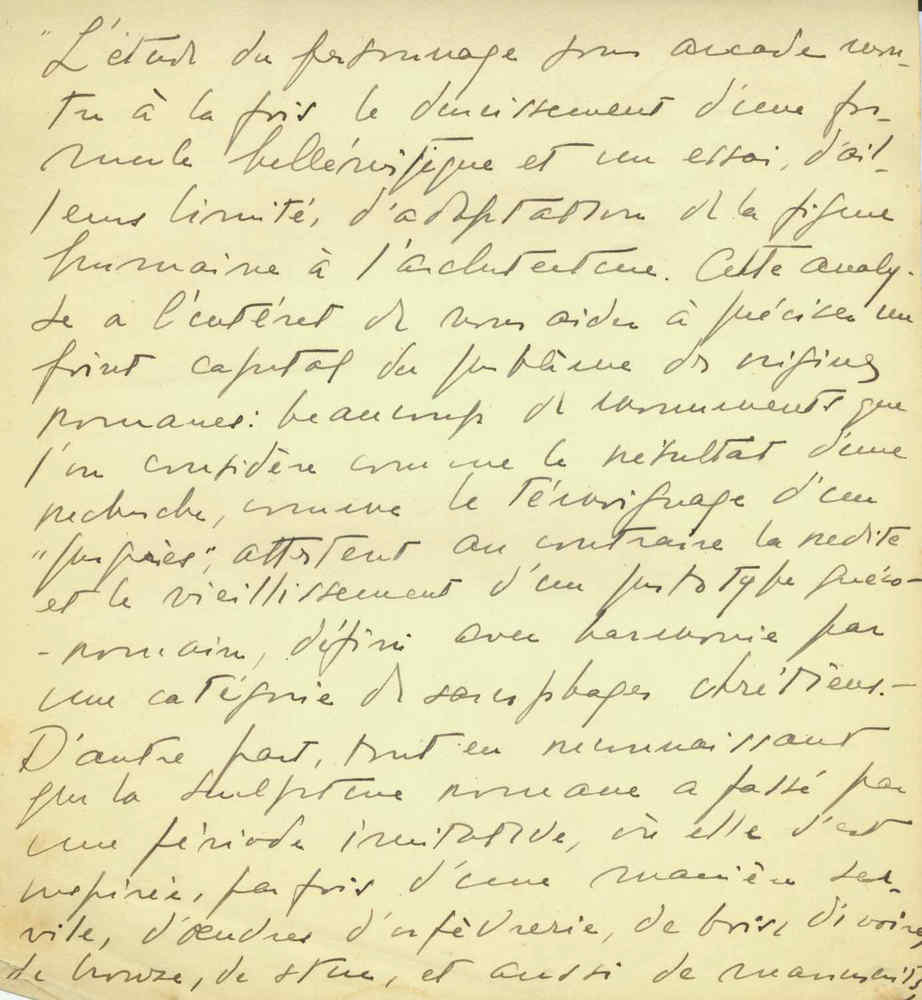 "L'étude du personnage sous arcade mon-
tre à la fois le durcissement d'une for-
mule hellénistique et un essai, d'ail-
leurs limité, d'adaptation de la figure
humaine à l'architecture. Cette analy-
se a l'intérêt de nous aider à préciser un
point capital du problème des origines
romanes: beaucoup de monuments que
l'on considère comme le résultat d'une
recherche, comme le témoignage d'un
"progrès", attestent au contraire la redite
et le vieillissement d'un prototype gréco-
-romain, défini avec harmonie par
une catégorie de sarcophages chrétiens.-
D'autre part, tout en reconnaissant
que la sculpture romane a passé par
une période imitative, où elle s'est
inspirée, parfois d'une manière ser-
vile, d'œuvres d'orfèvrerie, de bois, d'ivoire,
de bronze, de stuc, et aussi de manuscrits,